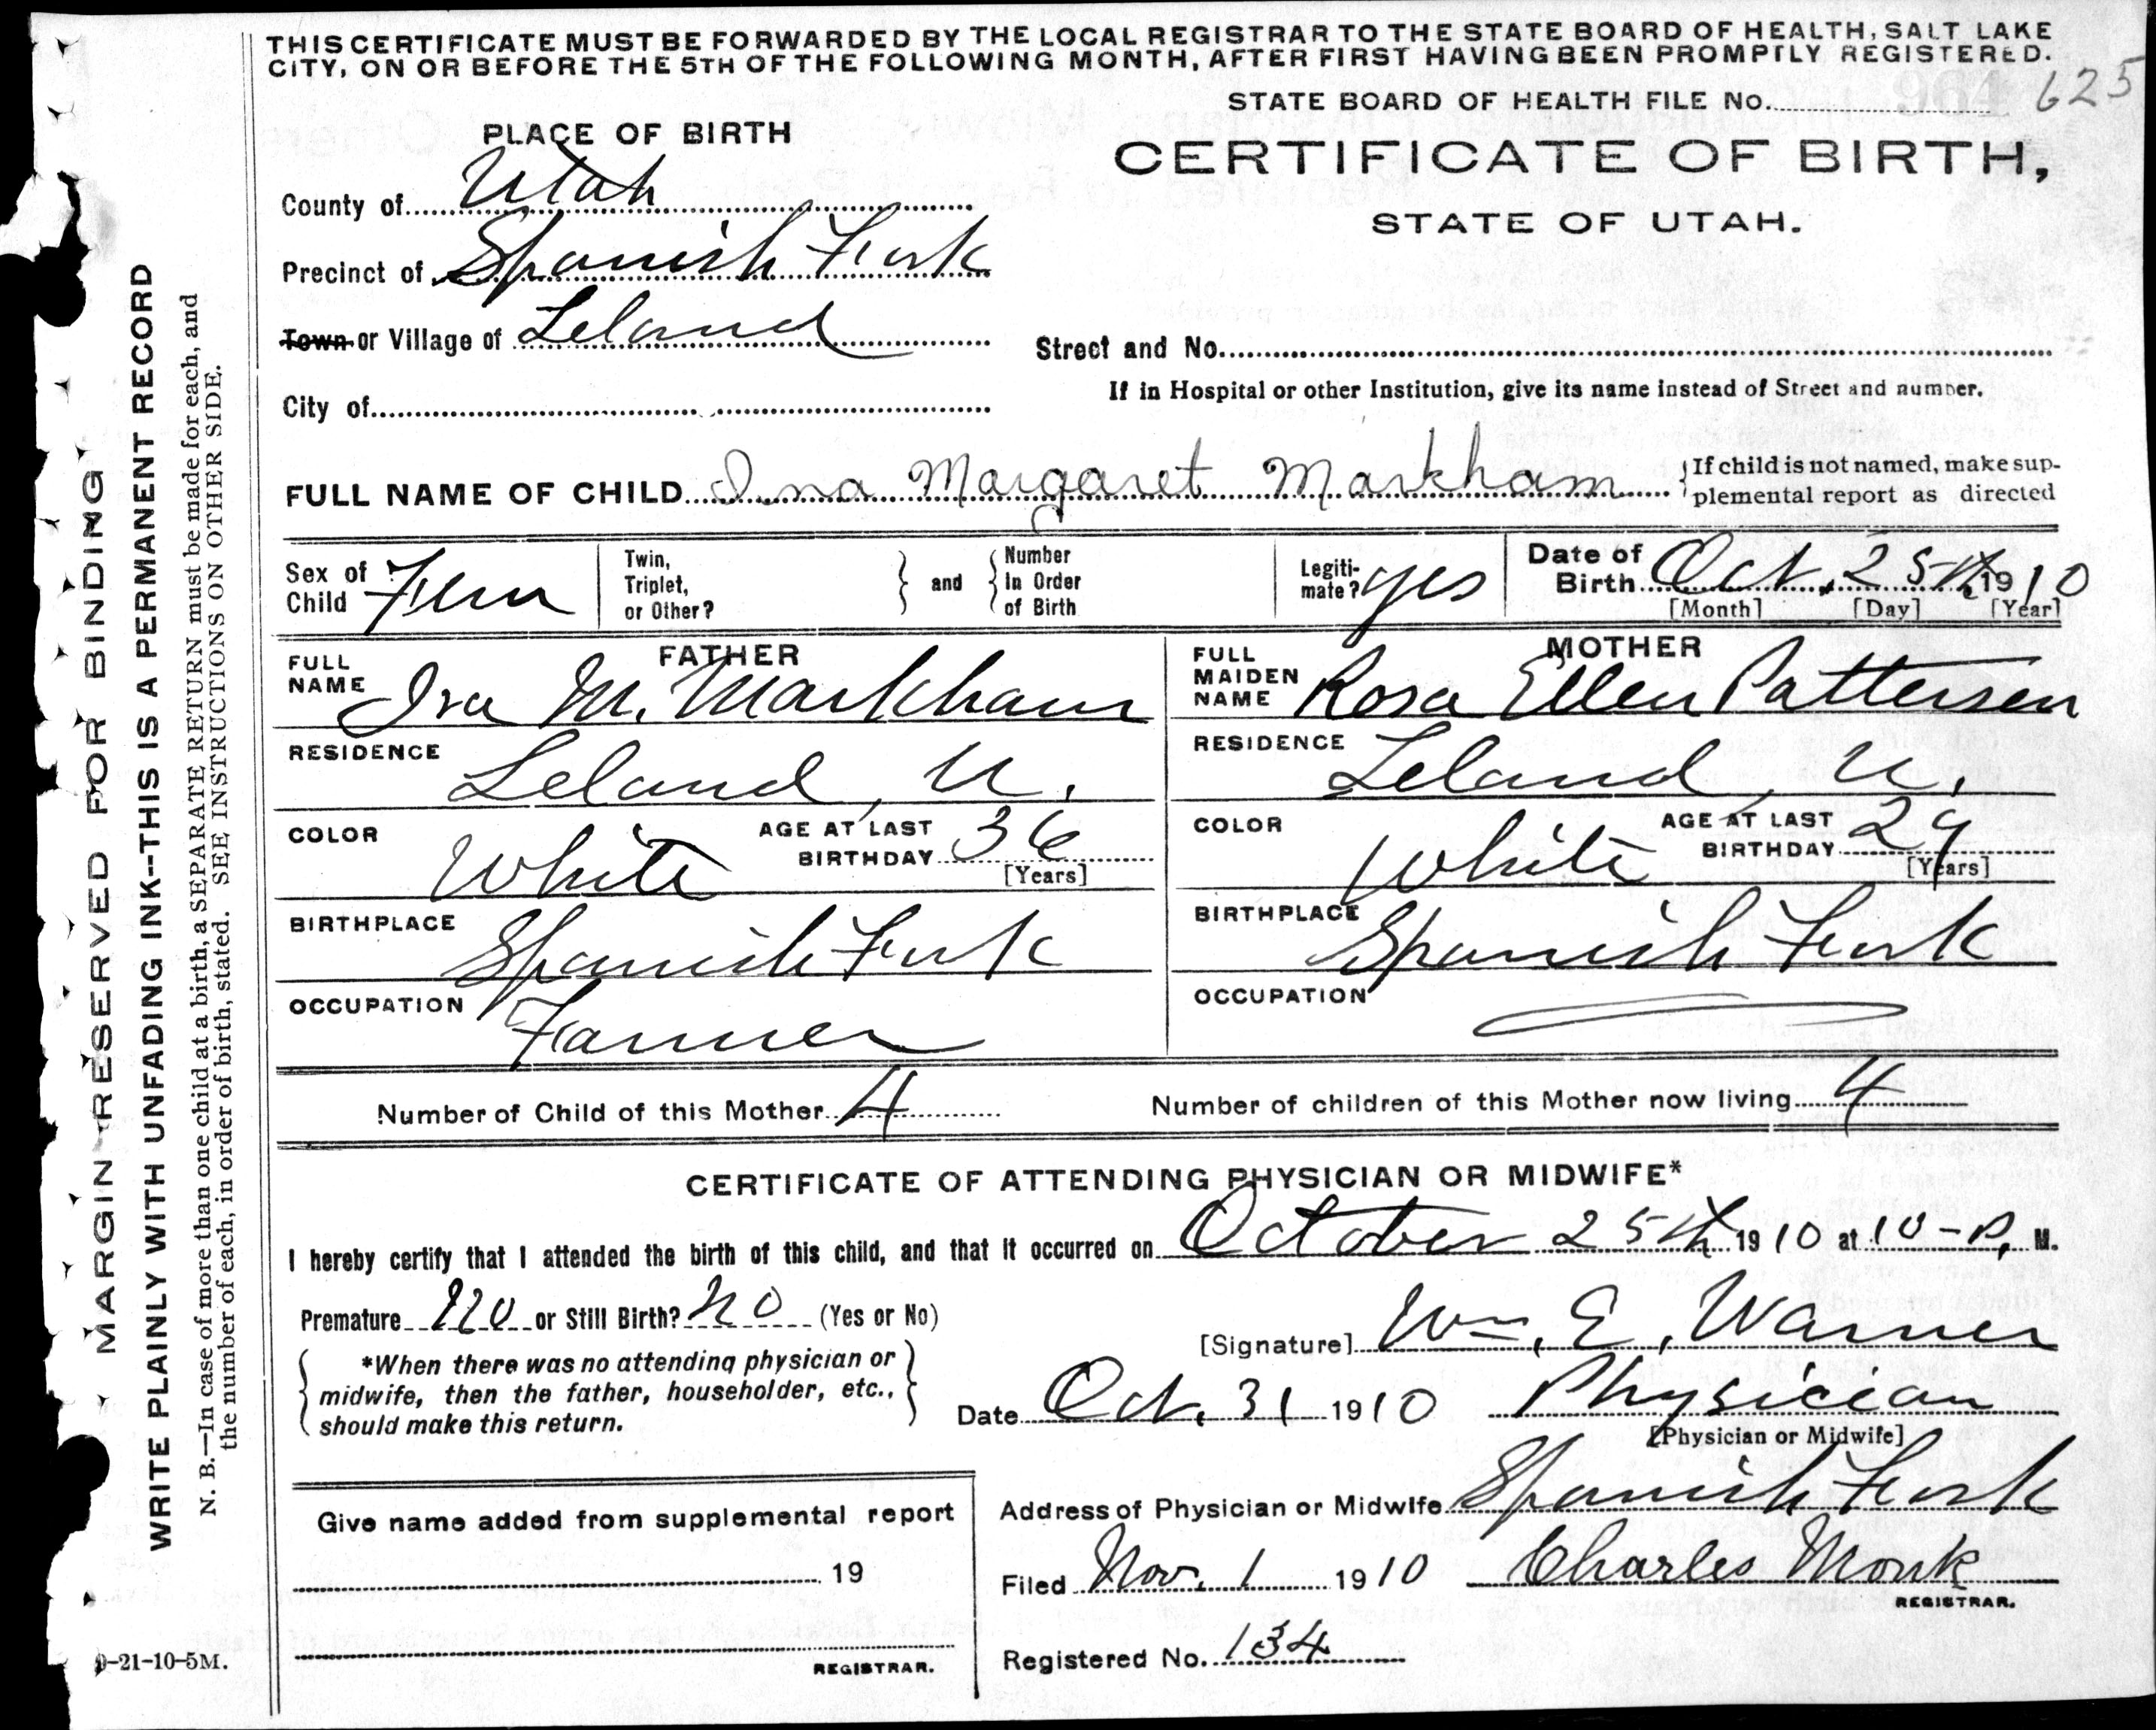 THIS CERTIFICATE MUST BE FORWARDED BY THE LOCAL REGISTRAR TO THE STATE BOARD OF HEALTH, SALT LAKE
CITY, ON OR BEFORE THE 5TH OF THE FOLLOWING MONTH, AFTER FIRST HAVING BEEN PROMPTLY REGISTERED.
STATE BOARD OF HEALTH FILE No. 625
PLACE OF BIRTH
CERTIFICATE OF BIRTH,
STATE OF UTAH.
County of Utah
Precinct of Spanish Fork
Town or Village of Leland
Street and No.
If in Hospital or other Institution, give its name instead of Street and number.
City of
FULL NAME OF CHILD Ina Margaret Markham
If child is not named, make sup-
plemental report as directed
Sex of Child Fem
Twin, Triplet, or Other?
and
Number In Order of Birth
Legiti-mate? yes
Date of Birth Oct. 25th 1910
[Month] [Day] [Year]
FATHER
FULL NAME Ira M. Markham
RESIDENCE Leland, U.
COLOR White AGE AT LAST BIRTHDAY 36 [Years]
BIRTHPLACE Spanish Fork
OCCUPATION Farmer
MOTHER
FULL MAIDEN NAME Rosa Ellen Pattersen
RESIDENCE Leland, U.
COLOR White AGE AT LAST BIRTHDAY 29 [Years]
BIRTHPLACE Spanish Fork
OCCUPATION
Number of Child of this Mother 4 Number of children of this Mother now living 4
CERTIFICATE OF ATTENDING PHYSICIAN OR MIDWIFE*
I hereby certify that I attended the birth of this child, and that it occurred on October 25th 1910 at 10-P. M.
Premature no or Still Birth? no (Yes or No)
[Signature] Wm. E. Warner
*When there was no attending physician or
midwife, then the father, householder, etc.,
should make this return.
Date Oct. 31 1910 Physician
[Physician or Midwife]
Address of Physician or Midwife Spanish Fork
Filed Nov. 1 1910 Charles Monk
REGISTRAR.
Registered No. 134
Give name added from supplemental report
19
REGISTRAR.
9-21-10-5M.
MARGIN RESERVED FOR BINDING
WRITE PLAINLY WITH UNFADING INK--THIS IS A PERMANENT RECORD
N. B.—In case of more than one child at a birth, a SEPARATE RETURN must be made for each, and
the number of each, in order of birth, stated. SEE INSTRUCTIONS ON OTHER SIDE.